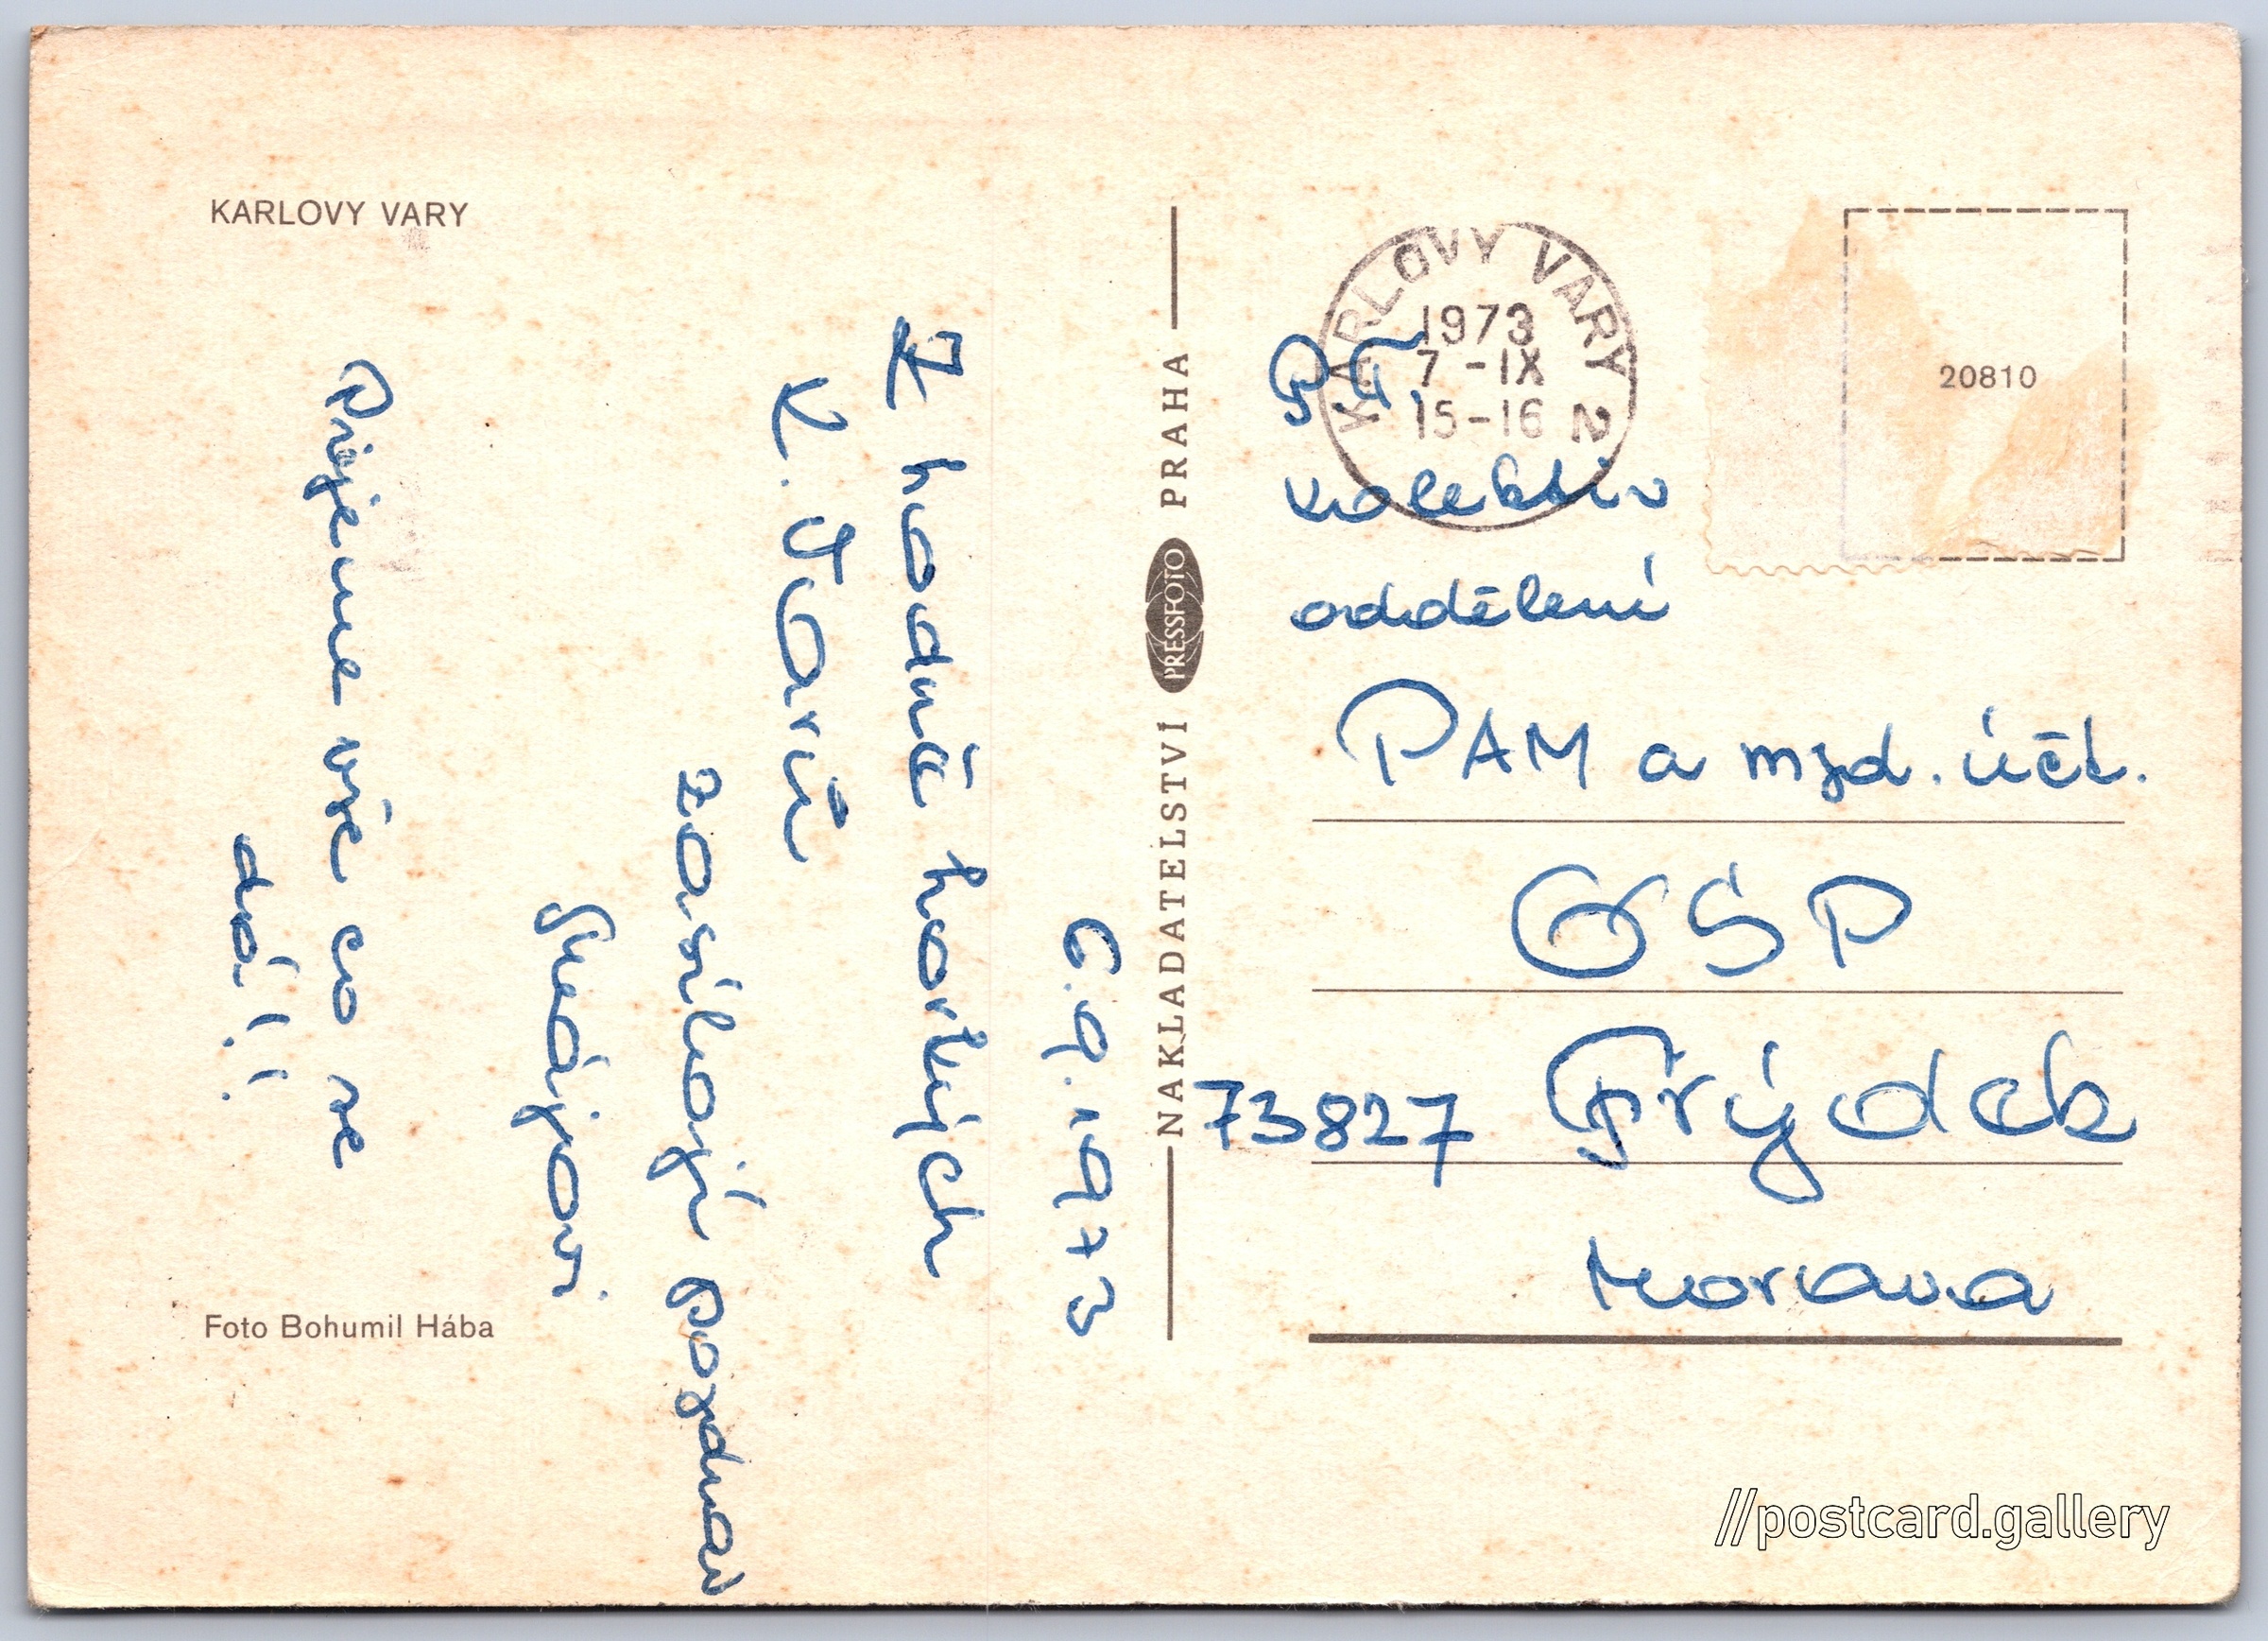 KARLOVY VARY
6.9.1973
Z hodně horkých
K. Varů
zasílají pozdrav
Přejeme vše co se
dá!!
Foto Bohumil Hába
NAKLADATELSTVÍ PRESSFOTO PRAHA
KARLOVY VARY 2
1973
7 -IX
15-16
20810
P.T.
kolektiv
oddělení
PAM a mzd. účt.
OSP
73827 Frýdek
Morava
//postcard.gallery